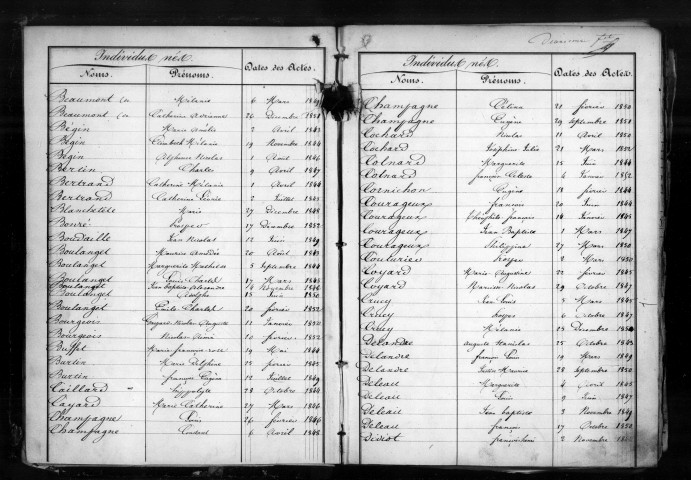 Individus nés
Noms. Prénoms. Dates des Actes.
Beaumont Mélanie 6 Mars 1849
Beaumont Catherine Adrienne 26 Décembre 1851
Bégin Marie Amélie 2 Avril 1843
Bégin Elisabeth Mélanie 19 Novembre 1844
Bégin Alphonse Nicolas 1 Août 1846
Bertin Charles 9 Avril 1847
Bertrand Catherine Mélanie 1 Avril 1844
Bertrand Catherine 2 Juillet 1845
Blanchetête Marie 27 Décembre 1848
Bouré Prosper 17 Décembre 1852
Boudaille Jean Nicolas 12 Juin 1849
Boulanget Maurice Amédée 20 Août 1843
Boulanget Marguerite Mathilde 5 Septembre 1844
Boulanget Louis Charles 17 Mars 1845
Boulanget Jean Baptiste Alexandre 14 Novembre 1846
Boulanget Adolphe 15 Juin 1850
Boulanget Emile Charles 20 février 1852
Bourgeois Nicolas Auguste 11 Janvier 1850
Bourgeois Nicolas Aimé 10 février 1852
Buffet Marie françoise 19 Mai 1844
Burtin Marie Delphine 15 février 1845
Burtin françois Eugène 12 Juillet 1849
Caillard Hippolyte 28 Octobre 1844
Cayard Marie Catherine 27 Mars 1846
Champagne Louis 26 février 1846
Champagne Constant 6 Avril 1848
Individus nés
Noms. Prénoms. Dates des Actes.
Champagne Célina 21 février 1850
Champagne Eugène 29 Septembre 1851
Cochard Nicolas 11 Avril 1850
Cochard Joséphine Julie 21 Mars 1852
Colnard Marguerite 15 Juin 1844
Colnard françois Céleste 6 février 1852
Cornichon Eugène 18 février 1844
Courageux françois 20 Juin 1844
Courageux Théophile françois 14 Janvier 1845
Courageux Jean Baptiste 1 Mars 1847
Courageux Philippine 27 Mars 1850
Couturier 2 Mars 1850
Coyard Marie Augustine 22 février 1845
Coyard Nicolas 29 Octobre 1847
Crucy Jean Louis 5 Mars 1845
Crucy 6 Octobre 1847
Crucy Mélanie 23 Décembre 1850
Delandre Auguste Stanislas 25 Octobre 1845
Delandre françois Louis 19 Mars 1849
Delandre 28 Septembre 1852
Deleau Marguerite 4 Avril 1845
Deleau Louis 9 Juin 1847
Deleau Jean baptiste 3 Novembre 1849
Deleau françois 17 Octobre 1850
Didiot 2 Novembre